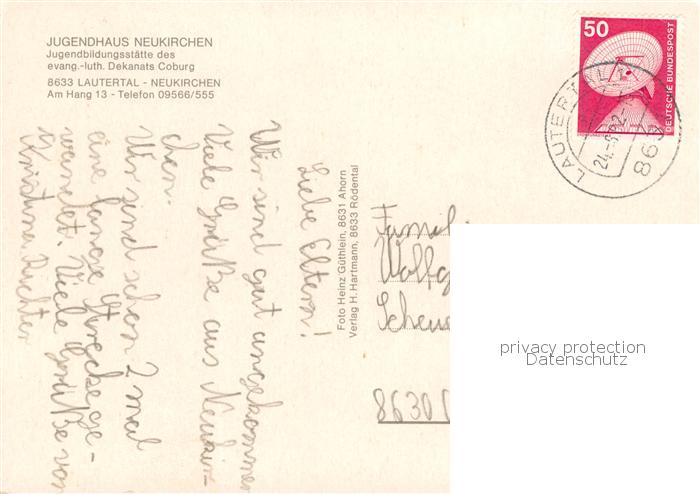 JUGENDHAUS NEUKIRCHEN
Jugendbildungsstätte des
evang.-luth. Dekanats Coburg
8633 LAUTERTAL - NEUKIRCHEN
Am Hang 13 - Telefon 09566/555
50
DEUTSCHE BUNDESPOST
LAUTERTAL
24.-6.82-
863
Liebe Eltern!
Wir sind gut angekommen
Viele Grüße aus Neukir-
chen.
Wir sind schon 2 mal
eine lange Strecke ge-
wandet. Viele Grüße von
Kristina Richter
Foto Heinz Güthlein, 8631 Ahorn
Verlag H. Hartmann, 8633 Rödental
Famil
Wolfg
Scheue
8630
privacy protection
Datenschutz